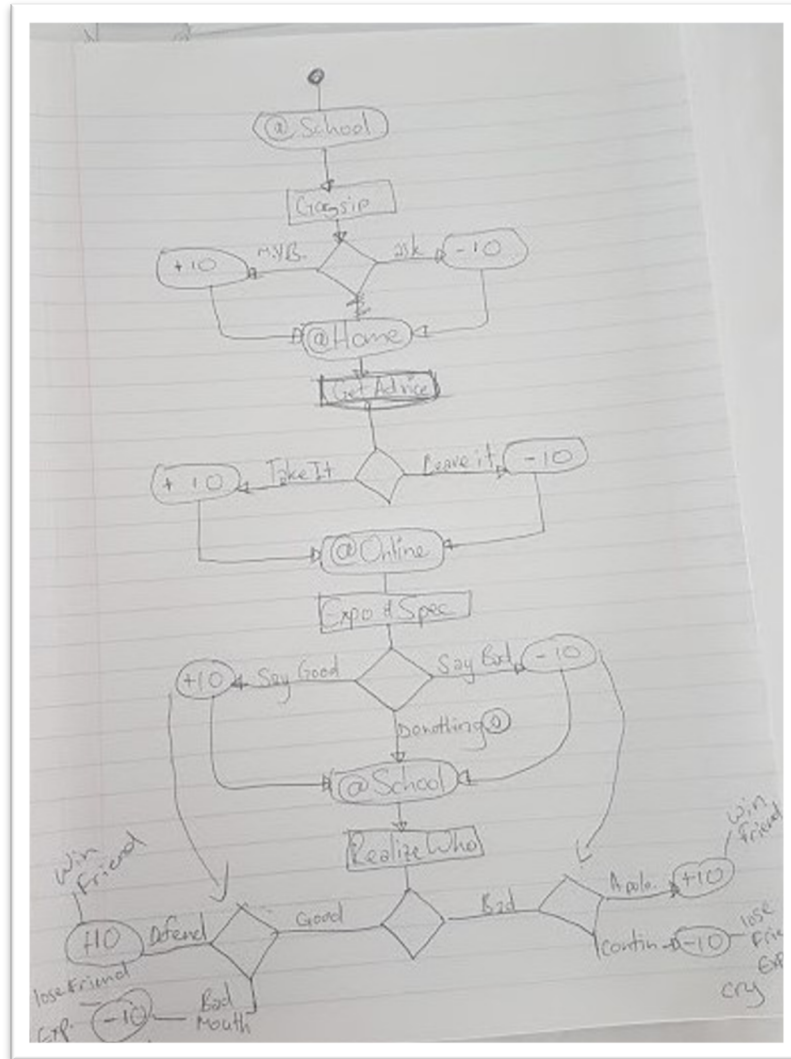 @ School
Gossip
+10 M.Y.B. ask -10
@Home
Get Advice
+10 Take It Leave it -10
@Online
Expo & Spec
+10 Say Good Say Bad -10
Donothing 0
@School
Realize Who
Win Friend
Win Friend
+10 Defend Good Bad Apolo. +10
lose Friend
Contin -10 lose
Exp. -10 Bad Mouth
cry